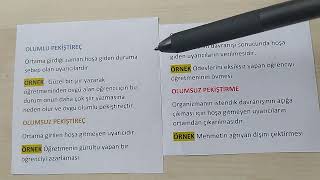 OLUMLU PEKİŞTİREÇ
Ortama girdiği zaman hoşa giden duruma
sebep olan uyarıcılardır.
ÖRNEK Güzel bir şiir yazarak
öğretmeninden övgü alan öğrenci için bu
durum onun daha çok şiir yazmasına
neden olur ve övgü olumlu pekiştireçtir.
OLUMSUZ PEKİŞTİREÇ
Ortama girilen hoşa gitmeyen uyarıcıdır.
ÖRNEK Öğretmenin gürültü yapan bir
öğrenciyi azarlaması.
davranışı sonucunda hoşa
giden uyarıcıların verilmesidir.
ÖRNEK Ödevlerini eksiksiz yapan öğrenciyi
öğretmeninin övmesi
OLUMSUZ PEKİŞTİRME
Organizmanın istendik davranışının açığa
çıkması için hoşa gitmeyen uyarıcıların
ortamdan çıkarılmasıdır.
ÖRNEK Mehmetin ağrıyan dişim çektirmesi